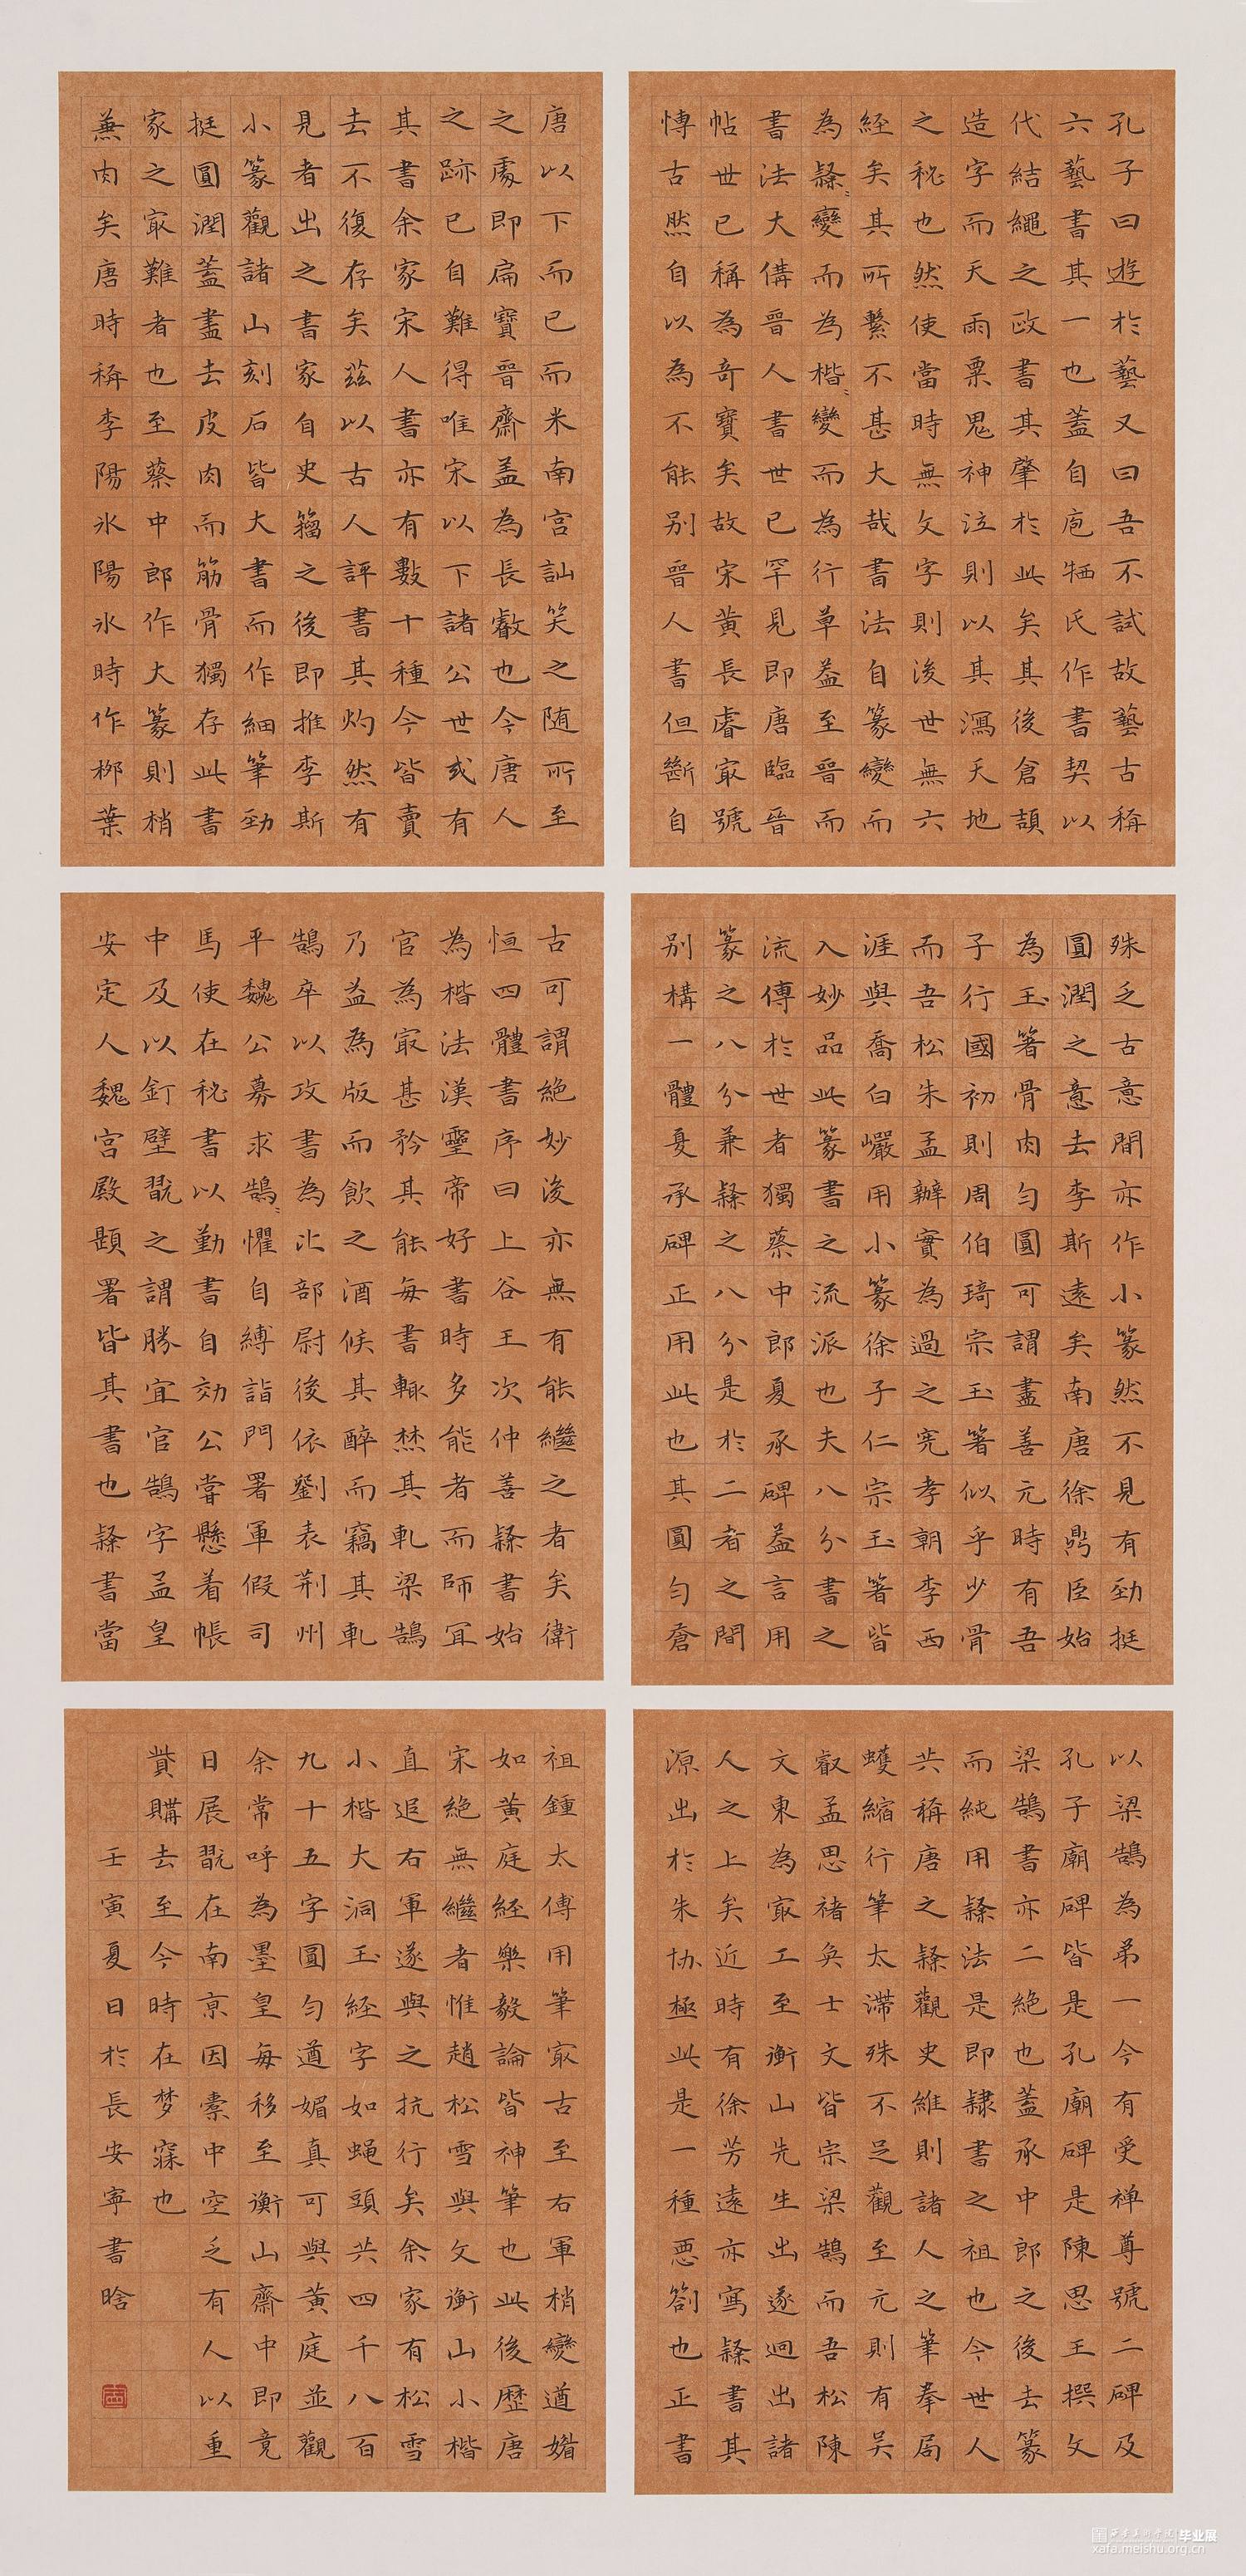 孔子曰遊於藝又曰吾不試故藝古稱
六藝書其一也蓋自庖牺氏作書契以
代結繩之政書其肇於此矣其後倉頡
造字而天雨粟鬼神泣則以其瀉天地
之秘也然使當時無文字則後世無六
經矣其所繫不甚大哉書法自篆變而
為隸〻變而為楷〻變而為行草蓋至晉而
書法大備晉人書世已罕見即唐臨晉
帖世已稱為奇寶矣故宋黃長睿最號
博古然自以為不能別晉人書但斷自
唐以下而已而米南宮訕笑之随所至
之處即扁寶晉齋蓋為長叡也今唐人
之跡已自難得唯宋以下諸公世或有
其書余家宋人書亦有數十種今皆賣
去不復存矣茲以古人評書其灼然有
見者出之書家自史籀之後即推李斯
小篆觀諸山刻石皆大書而作細筆勁
挺圓潤蓋盡去皮肉而筋骨獨存此書
家之最難者也至蔡中郎作大篆則稍
兼肉矣唐時稱李陽冰陽冰時作柳葉
殊乏古意間亦作小篆然不見有勁挺
圓潤之意去李斯遠矣南唐徐鼎臣始
為玉箸骨肉勻圓可謂盡善元時有吾
子行國初則周伯琦宗玉箸似乎少骨
而吾松朱孟辦實為過之宪孝朝李西
涯與喬白巖用小篆徐子仁宗玉箸皆
入妙品此篆書之流派也夫八分書之
流傳於世者獨蔡中郎夏承碑蓋言用
篆之八分兼隸之八分是於二者之間
別構一體夏承碑正用此也其圓勻蒼
古可謂絕妙後亦無有能繼之者矣衛
恒四體書序曰上谷王次仲善隸書始
為楷法漢靈帝好書時多能者而師宜
官為最甚矜其能每書輒焚其軋梁鵠
乃益為版而飲之酒候其醉而竊其軋
鵠卒以攻書為北部尉後依劉表荊州
平魏公募求鵠〻懼自縛詣門署軍假司
馬使在秘書以勤書自効公嘗懸着帳
中及以釘壁翫之謂勝宜官鵠字孟皇
安定人魏宮殿題署皆其書也隸書當
以梁鵠為弟一今有受禅尊號二碑及
孔子廟碑皆是孔廟碑是陳思王撰文
梁鵠書亦二絕也蓋承中郎之後去篆
而純用隸法是即隸書之祖也今世人
共稱唐之隸觀史維則諸人之筆拳局
蠖縮行筆太滯殊不足觀至元則有吴
叡孟思褚奂士文皆宗梁鵠而吾松陳
文東為最工至衡山先生出遂迥出諸
人之上矣近時有徐芳遠亦寫隸書其
源出於朱協極此是一種惡劄也正書
祖鍾太傅用筆最古至右軍稍變遒媚
如黃庭經樂毅論皆神筆也此後歷唐
宋絕無繼者惟趙松雪與文衡山小楷
直追右軍遂與之抗行矣余家有松雪
小楷大洞玉經字如蝇頭共四千八百
九十五字圓勻遒媚真可與黃庭並觀
余常呼為墨皇每移至衡山齋中即竟
日展翫在南京因橐中空乏有人以重
貲購去至今時在梦寐也
壬寅夏日於長安寧書晗
毕业展
xafa.meishu.org.cn